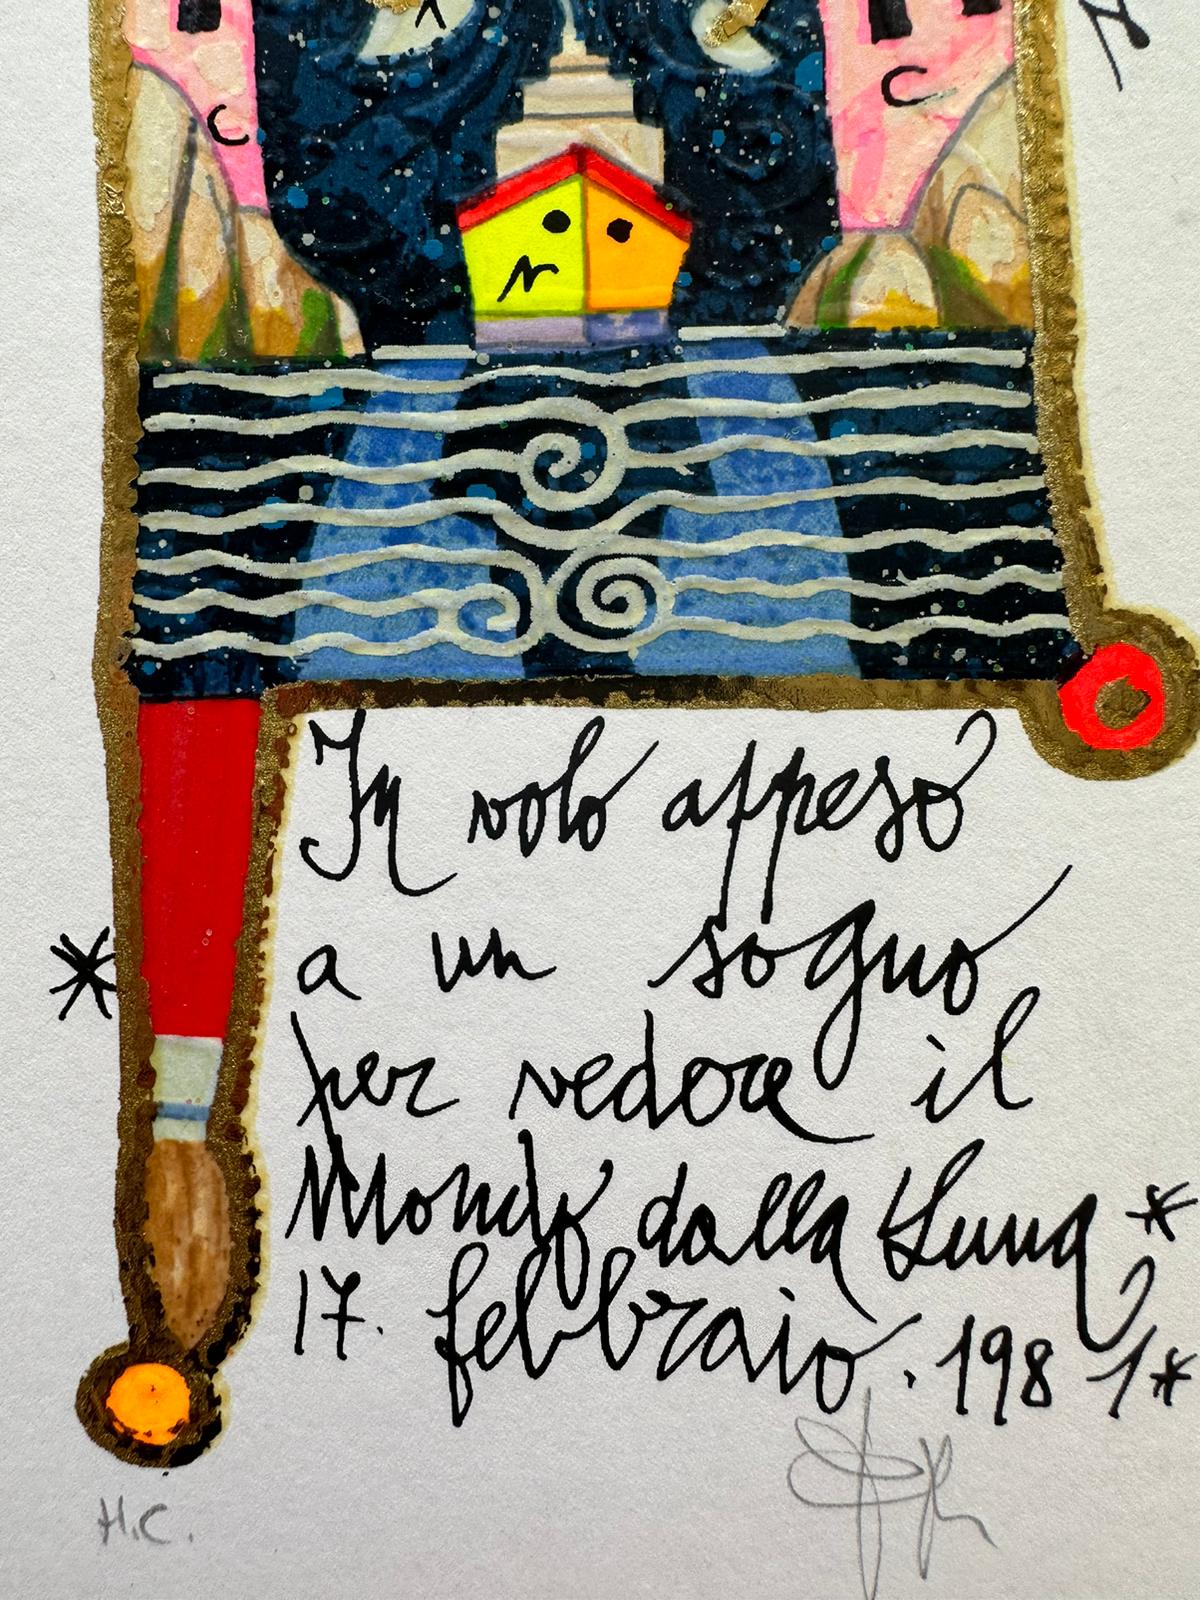 In volo appeso
a un sogno
per vedere il
Mondo dalla Luna *
17. febbraio. 1981*
H.C.